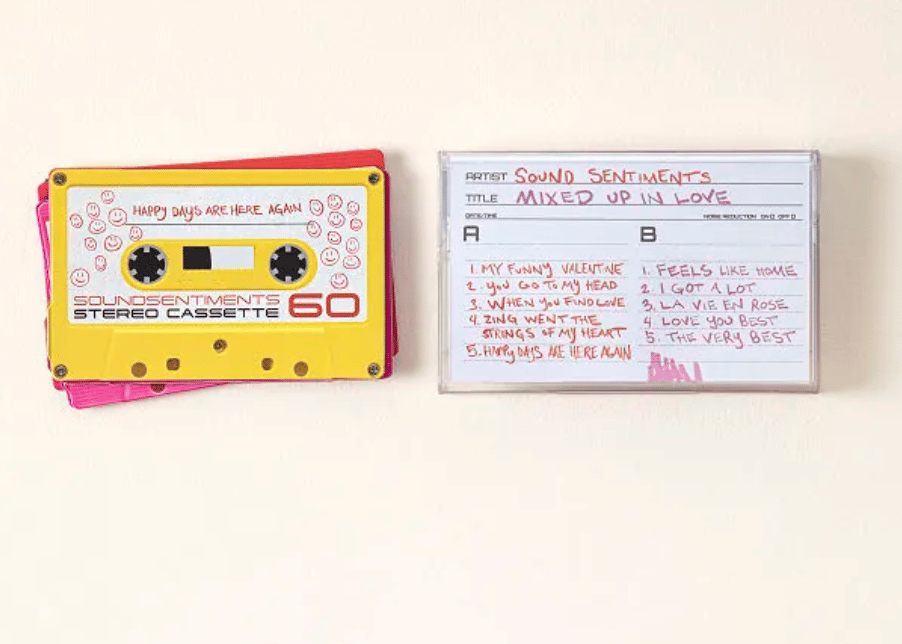 HAPPY DAYS ARE HERE AGAIN
SOUNDSENTIMENTS 60
STEREO CASSETTE
ARTIST SOUND SENTIMENTS
TITLE MIXED UP IN LOVE
DATE/TIME NOISE REDUCTION ON OFF
A
1. MY FUNNY VALENTINE
2. YOU GO TO MY HEAD
3. WHEN YOU FIND LOVE
4. ZING WENT THE
STRINGS OF MY HEART
5. HAPPY DAYS ARE HERE AGAIN
B
1. FEELS LIKE HOME
2. I GOT A LOT
3. LA VIE EN ROSE
4 LOVE YOU BEST
5. THE VERY BEST